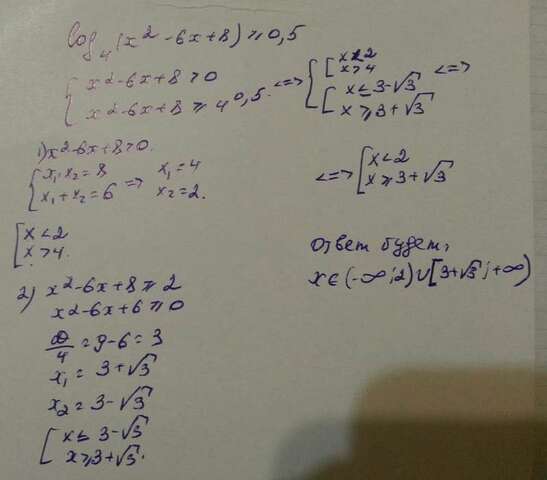 log₄(x²-6x+8) ≥ 0,5
{ x²-6x+8 > 0
{ x²-6x+8 ≥ 4^0,5. <=>
{ [ x < 2
[ x > 4
[ x ≤ 3-√3 <=>
[ x ≥ 3+√3
<=> [ x < 2
[ x ≥ 3+√3
1) x²-6x+8 > 0.
{ x₁·x₂ = 8
{ x₁+x₂ = 6 => x₁ = 4
x₂ = 2.
[ x < 2
[ x > 4.
2) x²-6x+8 ≥ 2
x²-6x+6 ≥ 0
D/4 = 9-6 = 3
x₁ = 3+√3
x₂ = 3-√3
[ x ≤ 3-√3
[ x ≥ 3+√3.
Ответ будет:
x ∈ (-∞; 2) ∪ [3+√3; +∞)